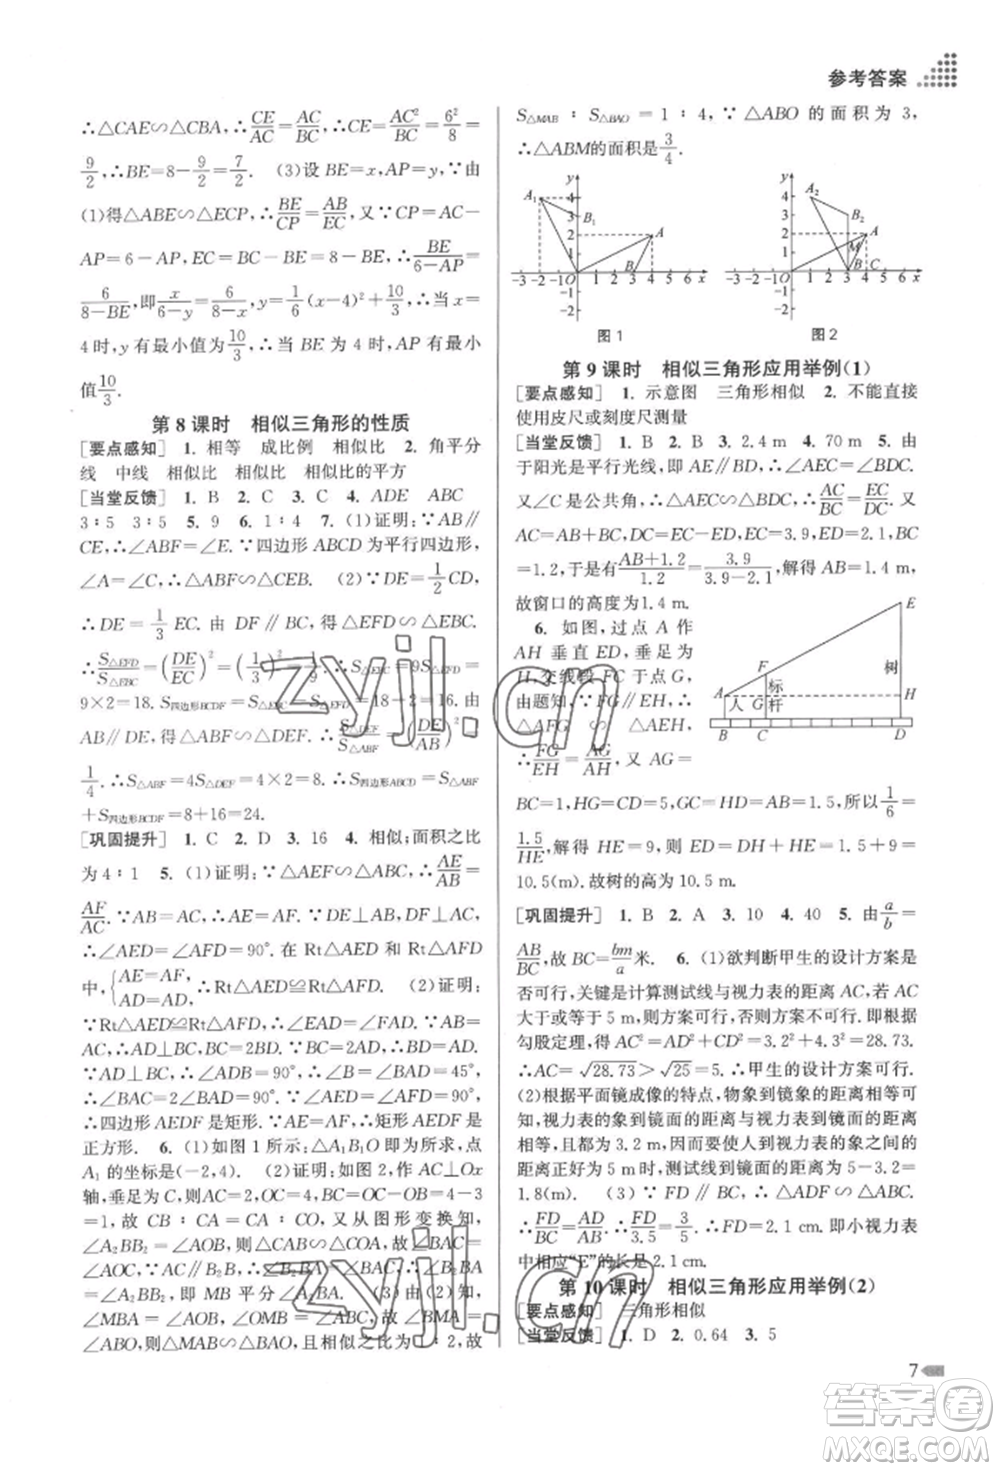 参考答案
∴△CAE∽△CBA,∴CE/AC=AC/BC.∴CE=AC²/BC=6²/8=
9/2,∴BE=8-9/2=7/2. (3)设 BE=x,AP=y,由
(1)得△ABE∽△ECP,∴BE/CP=AB/EC,又∵CP=AC-
AP=6-AP,EC=BC-BE=8-BE,∴BE/6-AP=
6/8-BE,即x/6-y=6/8-x,y=1/6(x-4)²+10/3,∴当 x=
4 时,y 有最小值10/3.∴当 BE=4 时,AP 有最小
值10/3.
第 8 课时 相似三角形的性质
[要点感知] 1. 相等 成比例 相似比 2. 角平分
线 中线 相似比 相似比 相似比的平方
[当堂反馈] 1. B 2. C 3. C 4. ADE ABC
3∶5 3∶5 5. 9 6. 1∶4 7. (1)证明:∵AB∥
CE,∴∠ABF=∠E.∵四边形 ABCD 为平行四边形,
∠A=∠C.∴△ABF∽△CEB. (2)∵DE=1/2CD,
∴DE=1/3EC.由 DF∥BC,得△EFD∽△EBC.
∴S△EFD/S△EBC=(DE/EC)²=(1/3)²=1/9,∴S△EBC=9S△EFD=
9×2=18.S四边形BCDF=S△EBC-S△EFD=18-2=16. 由
AB∥DE,得△ABF∽△DEF,∴S△DEF/S△ABF=(DE/AB)²=
1/4.∴S△ABF=4S△DEF=4×2=8.∴S四边形ABCD=S△ABF
+S四边形BCDF=8+16=24.
[巩固提升] 1. C 2. D 3. 16 4. 相似;面积之比
为 4∶1 5. (1)证明:∵△AEF∽△ABC,∴AE/AB=
AF/AC.∵AB=AC,∴AE=AF.∵DE⊥AB,DF⊥AC,
∴∠AED=∠AFD=90°.在 Rt△AED 和 Rt△AFD
中,{AE=AF,AD=AD,∴Rt△AED≌Rt△AFD. (2)证明:
∵Rt△AED≌Rt△AFD,∴∠EAD=∠FAD.∵AD=
BD,∴∠B=∠BAD.∵BC=2AD,∴BD=DC=AD.
∵AB=AC,∴AD⊥BC.∴∠B=∠BAD=45°,
∴∠BAC=2∠BAD=90°.∵∠AED=∠AFD=90°,
∴四边形 AEDF 是矩形.∵AE=AF,∴矩形 AEDF 是
正方形. 6. (1)如图 1 所示:△A₁B₁O 即为所求,点
A₁ 的坐标是(-2,4). (2)证明:如图 2,作 AC⊥Ox
轴,垂足为 C,则∠ACO=90°,AC=2,OC=4,CB=4-3
=1,故 CB∶CA=CA∶CO=1∶2,
∴△CAB∽△COA,故∠BAC=∠AOC. 又从图形变换知,
∠A₂BO=∠ABC=90°,
∠ABA₂=∠BAC,故∠ABA₂=∠AOC.
∴△ABO∽△A₂BA. (3)由(2)知,
∠MBA=∠AOB,又∠BAM=∠OAB,故△BMA∽
△ABO,故△MAB∽△BAO,且其相似比为 1∶2,故
S△MAB∶S△BAO=1∶4,∵△ABO 的面积为 3,
∴△ABM的面积是3/4.
图 1 图 2
第 9 课时 相似三角形应用举例(1)
[要点感知] 1. 示意图 三角形相似 2. 不能直接
使用皮尺或刻度尺测量
[当堂反馈] 1. B 2. B 3. 2.4 m 4. 70 m 5. 由
于阳光是平行光线,即 AE∥BD,∴∠AEC=∠BDC.
又∠C 是公共角,∴△AEC∽△BDC,∴AC/BC=EC/DC. 又
AC=AB+BC,DC=EC-ED,EC=3.9,ED=2.1,BC
=1.2,于是有AB+1.2/1.2=3.9/3.9-2.1,解得 AB=1.4(m).
故窗口的高度为1.4 m.
6. 如图,过点 A 作
AH 垂直 ED,垂足为
H,交线段 FC 于点 G,
由题知,∵FG∥EH,∴
△AFG∽△AEH,
∴FG/EH=AG/AH.
E F A B G C H D 人 标杆 树
∵AG=BC=1,HG=CD=5,FG=1.5,所以1/6=
1.5/HE,解得 HE=9,则 ED=HE+HD=9+1.5=
10.5(m).故树的高为 10.5 m.
[巩固提升] 1. B 2. A 3. 10 4. 40 5. 由a/b=
AB/BC,故 BC=bm/a米. 6. (1)欲判断甲生的设计方案是
否可行,关键是计算测试线与视力表的距离 AC,若 AC
大于或等于 5 m,则方案可行,否则,方案不可行.根据
勾股定理,得 AC²=AD²+CD²=3.2²+4.3²=28.73.
∴AC=√28.73>√25=5.∴甲生的设计方案可行.
(2)根据平面镜成像的特点,物象到镜象的距离应
相等,于是视力表的象到镜面的距离与视力表到镜面的距离
相等,且都为 3.2 m,故要使人到视力表的象之间的距
离等于 5 m,测试线到镜面的距离应为 5-3.2=
1.8(m). (3)∵FD∥BC,∴△ADF∽△ABC.
∴FD/BC=AD/AB.∴FD/3.5=3/5.∴FD=2.1 cm.∴小视力表
中相应“E”的长是 2.1 cm.
第 10 课时 相似三角形应用举例(2)
[要点感知] 三角形相似
[当堂反馈] 1. D 2. 0.64 3. 5
7
zyjl.cn
zyjl.cn
答案圈
MXQE.COM